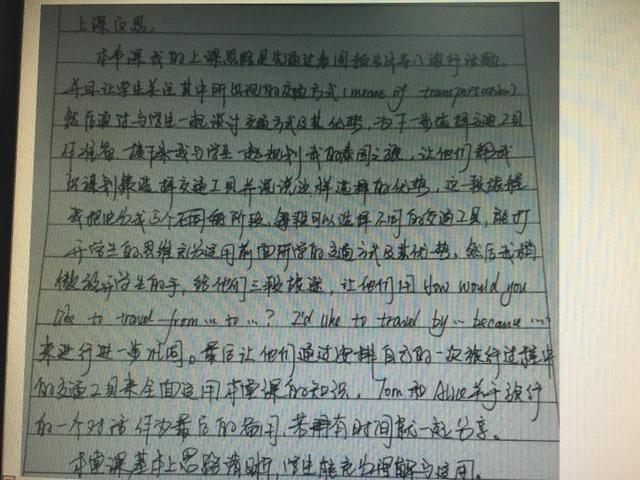 上课反思:
本单课我的上课思路是先通过泰国报告片导入旅行话题,
并且让学生关注其中所出现的交通方式(means of transportation)
然后通过与学生一起谈讨交通方式及其优势,为下一步选择交通工具
作准备。接下来我与学生一起规划我的泰国之旅,让他们帮我
选择交通工具并说说这样选择的优势,这一段旅程
我把它分成三个不同的阶段,每段可以选择不同的交通工具,能打
开学生的思维充分运用前面所学的交通方式及其优势。然后我稍
微放开学生的手,给他们三段旅途,让他们用How would you
like to travel from … to …? I'd like to travel by … because …
来进行进一步巩固。最后让他们通过安排自己的一次旅行过程中
的交通工具来全面运用本单课的知识。Tom和Alice关于旅行
的一个对话作为最后的备用,若有时间就一起分享。
本单课,基本上思路清晰,学生能充分理解与运用。